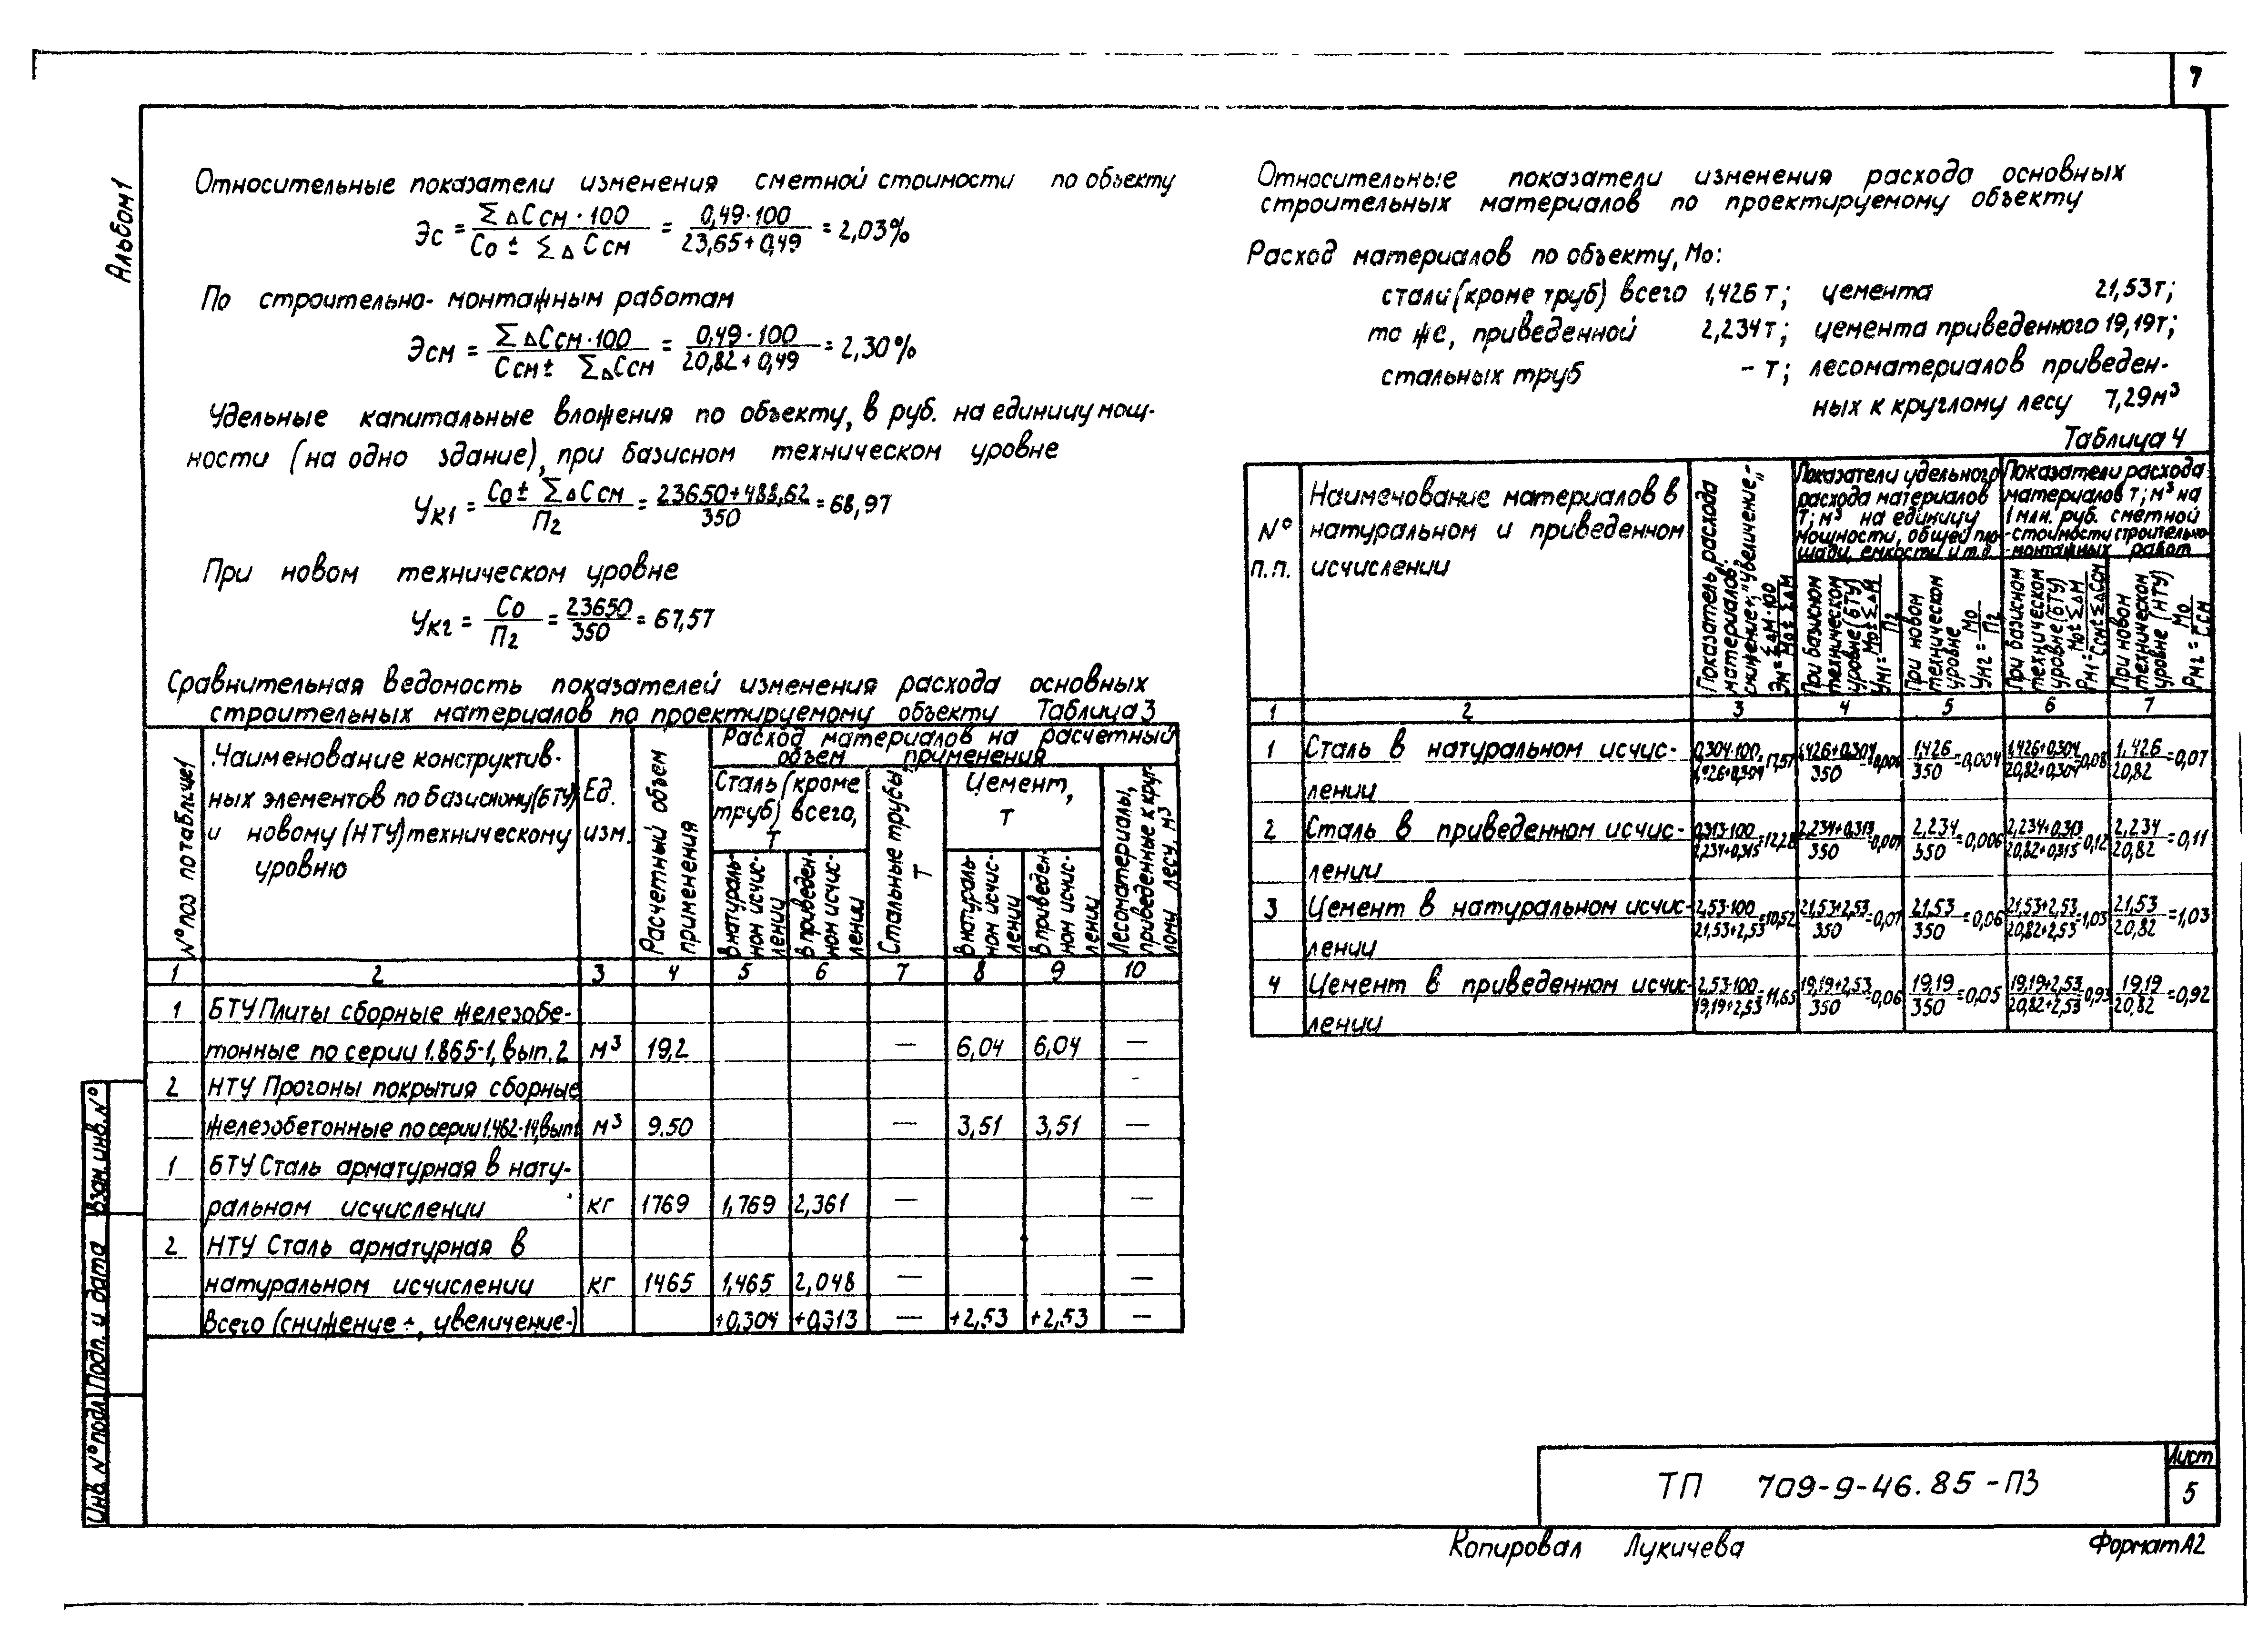 7
Альбом 1
Относительные показатели изменения сметной стоимости по объекту
Эс = ΣΔCсм·100 / Cо ± ΣΔCсм = 0,49·100 / 23,65+0,49 = 2,03%
По строительно-монтажным работам
Эсм = ΣΔCсм·100 / Cсм± ΣΔCсм = 0,49·100 / 20,82+0,49 = 2,30%
Удельные капитальные вложения по объекту, в руб. на единицу мощ-
ности (на одно здание), при базисном техническом уровне
Ук1 = Cо± ΣΔCсм / П2 = 23650+488,62 / 350 = 68,97
При новом техническом уровне
Ук2 = Cо / П2 = 23650 / 350 = 67,57
Сравнительная ведомость показателей изменения расхода основных
строительных материалов по проектируемому объекту Таблица 3
№ поз по таблице 1
Наименование конструктив-
ных элементов по базисному (БТУ)
и новому (НТУ) техническому
уровню
Ед.
изм.
Расчетный объем
применения
Расход материалов на расчетный
объем применения
Сталь (кроме
труб) всего,
Т
в натураль-
ном исчис-
лении
в приведен-
ном исчис-
лении
Стальные трубы,
Т
Цемент,
Т
в натураль-
ном исчис-
лении
в приведен-
ном исчис-
лении
Лесоматериалы,
приведенные к круг-
лому лесу, м³
1 2 3 4 5 6 7 8 9 10
1 БТУ Плиты сборные железобе-
тонные по серии 1.865-1, вып. 2 м³ 19,2 — 6,04 6,04 —
2 НТУ Прогоны покрытия сборные -
железобетонные по серии 1.462-14, вып1 м³ 9.50 — 3,51 3,51 —
1 БТУ Сталь арматурная в нату-
ральном исчислении кг 1769 1,769 2,361 — —
2 НТУ Сталь арматурная в
натуральном исчислении кг 1465 1,465 2,048 — —
Всего (снижение +, увеличение -) +0,304 +0,313 — +2,53 +2,53 —
Относительные показатели изменения расхода основных
строительных материалов по проектируемому объекту
Расход материалов по объекту, Мо:
стали (кроме труб) всего 1,426 т; цемента 21,53т;
то же, приведенной 2,234 т; цемента приведенного 19,19т;
стальных труб - т; лесоматериалов приведен-
ных к круглому лесу 7,29м³
Таблица 4
№
п.п.
Наименование материалов в
натуральном и приведенном
исчислении
Показатель расхода
материалов:
снижение+, "увеличение"-
Эм= ΣΔМ·100 / Мо± ΣΔМ
Показатели удельного
расхода материалов
Т; м³ на единицу
мощности, общей пло-
щади, емкости и т.д.
При базисном
техническом
уровне (БТУ)
Ум1= Мо± ΣΔМ / П2
При новом
техническом
уровне
Ум2 = Мо / П2
Показатели расхода
материалов т; м³ на
1 млн. руб. сметной
стоимости строительно-
монтажных работ
При базисном
техническом
уровне (БТУ)
Рм1= Мо± ΣΔМ / Ссм± ΣΔСсм
При новом
техническом
уровне (НТУ)
Рм2 = Мо / Ссм
1 2 3 4 5 6 7
1 Сталь в натуральном исчис- 0,304·100 / 1,426+0,304 =17,57 1,426+0,304 / 350 1,426 / 350 =0,004 1,426+0,304 / 20,82+0,304 =0,08 1.426 / 20,82 =0,07
лении
2 Сталь в приведенном исчис- 0,313·100 / 2,234+0,315 =12,28 2,234+0,313 / 350 2,234 / 350 =0,006 2,234+0,313 / 20,82+0,315 =0,12 2,234 / 20,82 =0,11
лении
3 Цемент в натуральном исчис- 2,53·100 / 21,53+2,53 =10,52 21,53+2,53 / 350 =0,07 21,53 / 350 =0,06 21,53+2,53 / 20,82+2,53 =1,03 21,53 / 20,82 =1,03
лении
4 Цемент в приведенном исчис- 2,53·100 / 19,19+2,53 =11,65 19,19+2,53 / 350 =0,06 19,19 / 350 =0,05 19,19+2,53 / 20,82+2,53 =0,93 19,19 / 20,82 =0,92
лении
Взам. инв. №
Подп. и дата
Инв. № подл.
ТП 709-9-46.85-ПЗ
Лист
5
Копировал Лукичева
Формат А2